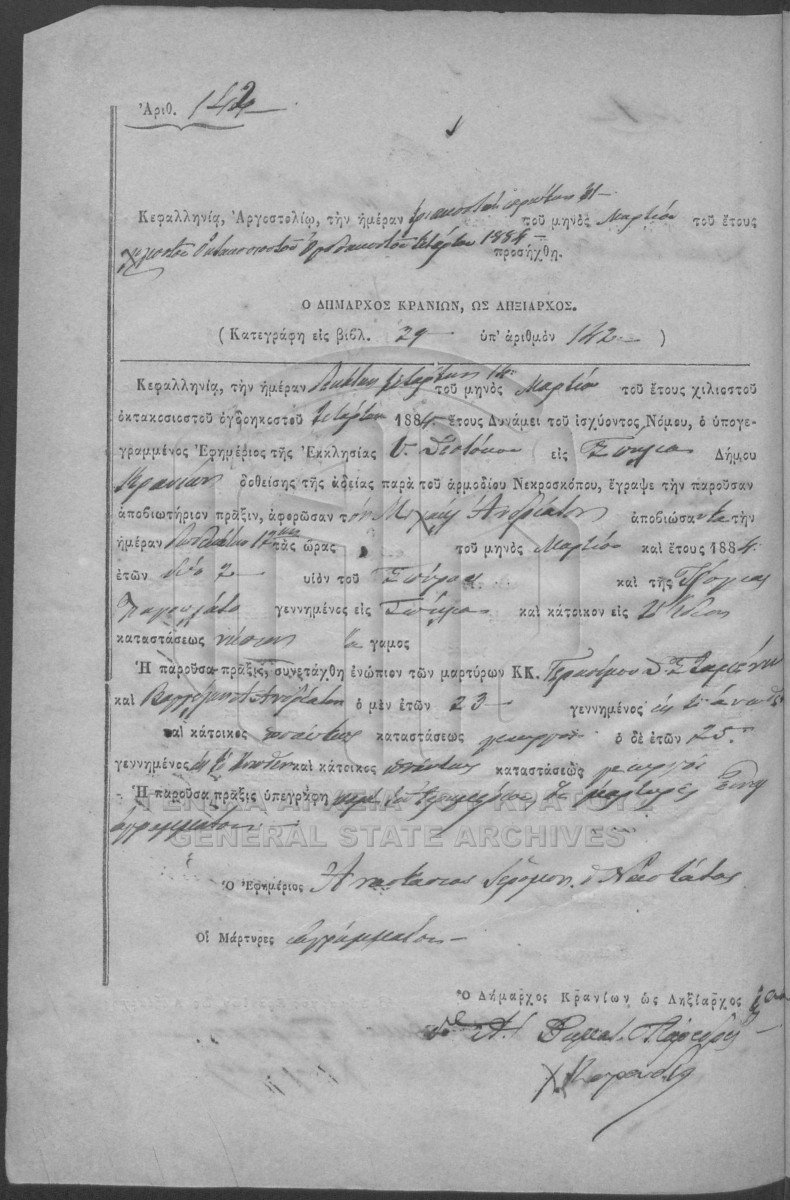 Ἀριθ. 142
Κεφαλληνίᾳ, Ἀργοστολίῳ, τὴν ἡμέραν τριακοστὴν πρώτην 31 τοῦ μηνὸς Μαρτίου τοῦ ἔτους
χιλιοστοῦ ὀκτακοσιοστοῦ ὀγδοηκοστοῦ τετάρτου 1884 προσήχθη.
Ο ΔΗΜΑΡΧΟΣ ΚΡΑΝΙΩΝ, ΩΣ ΛΗΞΙΑΡΧΟΣ.
( Κατεγράφη εἰς βιβλ. 29 ὑπ' ἀριθμὸν 142 )
Κεφαλληνίᾳ, τὴν ἡμέραν δεκάτην τετάρτην 14 τοῦ μηνὸς Μαρτίου τοῦ ἔτους χιλιοστοῦ
ὀκτακοσιοστοῦ ὀγδοηκοστοῦ τετάρτου 1884. ἔτους Δυνάμει τοῦ ἰσχύοντος Νόμου, ὁ ὑπογε-
γραμμένος Ἐφημέριος τῆς Ἐκκλησίας Υ. Θεοτόκου εἰς Δήμου
Κρανίων δοθείσης τῆς ἀδείας παρὰ τοῦ ἁρμοδίου Νεκροσκόπου, ἔγραψε τὴν παροῦσαν
ἀποβιωτήριον πρᾶξιν, ἀφορῶσαν τὸν Μιχαὴλ Ἀνδρεάτον ἀποβιώσαντα τὴν
ἡμέραν δωδεκάτην 12 τὰς ὥρας τοῦ μηνὸς Μαρτίου καὶ ἔτους 1884.
ἐτῶν δύο 2 υἱὸν τοῦ Σπύρου καὶ τῆς
γεννημένος εἰς καὶ κάτοικον εἰς
καταστάσεως ἄγαμος
Ἡ παροῦσα πρᾶξις, συνετάχθη ἐνώπιον τῶν μαρτύρων ΚΚ. Γερασίμου
καὶ Βαγγελινοῦ Ἀνδρεάτου ὁ μὲν ἐτῶν 23 γεννημένος εἰς
καὶ κάτοικος ὡσαύτως καταστάσεως γεωργοῦ ὁ δὲ ἐτῶν 25.
γεννημένος καὶ κάτοικος ὡσαύτως καταστάσεως γεωργοῦ
Ἡ παροῦσα πρᾶξις ὑπεγράφη παρ' ἐμοῦ μάρτυρες
ἀγράμματοι
ΓΕΝΙΚΑ ΑΡΧΕΙΑ ΤΟΥ ΚΡΑΤΟΥΣ
GENERAL STATE ARCHIVES
Ὁ Ἐφημέριος Ἀναστάσιος Ἱερομόν.
Οἱ Μάρτυρες ἀγράμματοι
Ὁ Δήμαρχος Κρανίων ὡς Ληξίαρχος